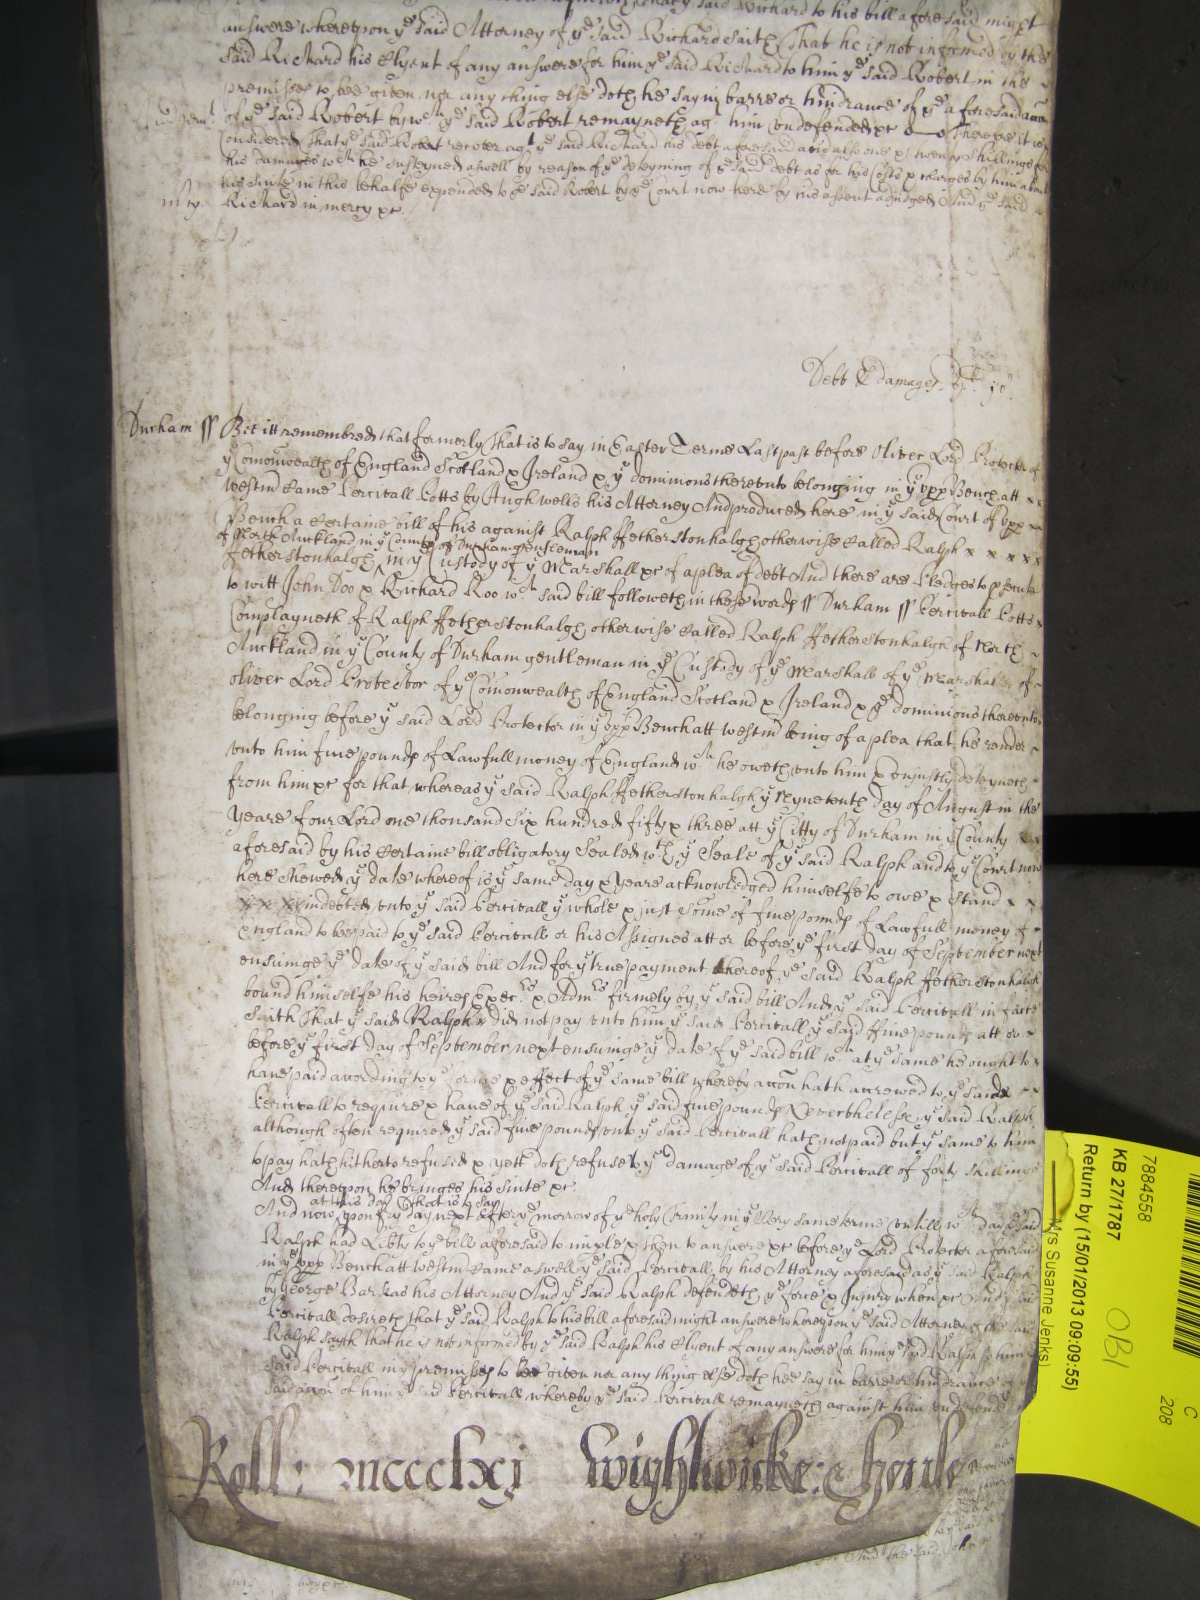 said Richard to his bill aforesaid might
answere whereupon ye said Attorney of ye said Richard saith That he is not informed by the
said Richard his Clyent of any answere for him ye said Richard to him ye said Robert in the
premisses to bee given nor any thing else doth he say in barre or hindrance of ye aforesaid accon
of ye said Robert by wch ye said Robert remayneth agt him undefended &c Therefore it is
Considered That ye said Robert recover agt ye said Richard his debt aforesaid and also one & twenty shillings for
his damages wch he susteyned aswell by reason of ye deteyning of ye said debt as for his Costs & charges by him about
his suite in this behalfe expended to ye said Robert by ye Court now here by his assent adjudged And ye said
Richard in mercy &c
Debt & damages
Durham ss Bee itt remembred that formerly That is to say in Easter Terme Last past before Oliver Lord Protector of
ye Comonwealth of England Scotland & Ireland & ye dominions thereunto belonging in ye upp Bench att x x
Westm Came Percivall Potts by Hugh Wells his Attorney And produced here in ye said Court of upp
Bench a Certaine bill of his against Ralph Fetherstonhalgh otherwise Called Ralph x x x x x
of North Auckland in ye County of Durham gentleman
Fetherstonhalgh in ye Custody of ye Marshall &c of a plea of debt And there are Pledges to prosecute
to witt John Doo & Richard Roo wch said bill followeth in these words ss Durham ss Percivall Potts x
Complayneth of Ralph Fetherstonhalgh otherwise Called Ralph Fetherstonhalgh of North
Auckland in ye County of Durham gentleman in ye Custody of ye Marshall of ye Marshalsea of
Oliver Lord Protector of ye Comonwealth of England Scotland & Ireland & ye dominions thereunto
belonging before ye said Lord Protector in ye upp Bench att Westm being of a plea that he render
unto him five pounds of Lawfull money of England wch he oweth unto him & unjustly deteyneth
from him &c for that whereas ye said Ralph Fetherstonhalgh ye Nynetenth day of August in the
Yeare of our Lord one thousand six hundred fifty & three att ye Citty of Durham in ye County x x
aforesaid by his Certaine bill obligatory Sealed wth ye Seale of ye said Ralph and to ye Court now
here shewed ye date whereof is ye same day & yeare acknowledged himselfe to owe & stand x x
x x x indebted unto ye said Percivall ye whole & just some of five pounds of Lawfull money of
England to bee paid to ye said Percivall or his Assignes att or before ye first day of September next
ensuinge ye date of ye said bill And for ye true payment thereof ye said Ralph Fetherstonhalgh
bound himselfe his heires Execrs & Admrs firmely by ye said bill And ye said Percivall in facte
saith That ye said Ralph did not pay unto him ye said Percivall ye said five pounds att or x
before ye first day of September next ensuinge ye date of ye said bill wch at ye same he ought to x
have paid according to ye forme & effect of ye same bill whereby accon hath accrewed to ye said x x
Percivall to require & have of ye said Ralph ye said five pounds Neverthelesse ye said Ralph
although often required ye said five pounds unto ye said Percivall hath not paid but ye same to him
to pay hath hitherto refused & yett doth refuse to ye damage of ye said Percivall of forty shillings
And thereupon he bringes his suite &c
at this day That is to say
And now upon day next after ye morrow of ye holy Trinity in ye Very same terme untill wch day ye said
Ralph had Liberty to ye bill aforesaid to imple & then to answere &c before ye Lord Protector aforesaid
in ye upp Bench att Westm Came aswell ye said Percivall by his Attorney aforesaid as ye said Ralph
by George Barkas his Attorney And ye said Ralph defendeth ye force & Injury when &c And ye said
Percivall desireth that ye said Ralph to his bill aforesaid might answere whereupon ye said Attorney of the said
Ralph sayth that he is not informed by ye said Ralph his Clyent of any answere for him ye said Ralph to him ye
said Percivall in ye premisses to bee given nor any thing else doth hee say in barre or hindrance of ye
said accon of him ye said Percivall whereby ye said Percivall remayneth against him undefended
Roll: mcccclxj Wightwicke:
7884558
KB 27/1787
Return by (15/01/2013 09:09:55)
Mrs Susanne Jenks)
OBI
C
208